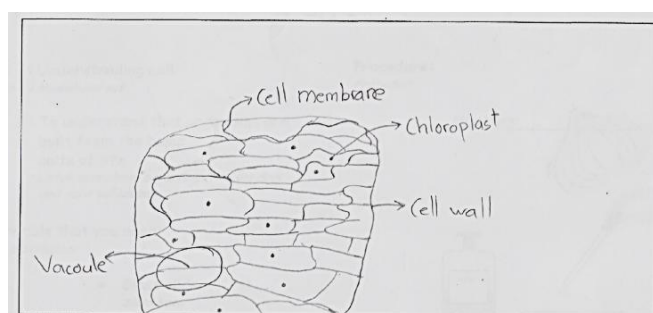 Cell membrane
Chloroplast
Cell wall
Vacoule